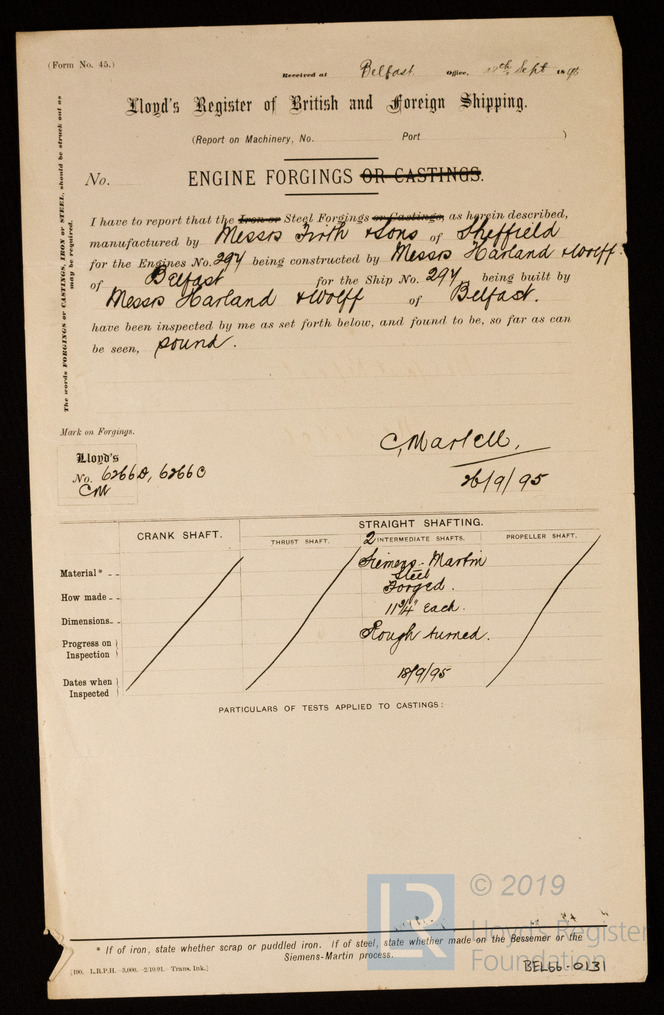 (Form No. 45.)
Received at Belfast Office, Sept 18
Lloyd's Register of British and Foreign Shipping.
(Report on Machinery, No. Port )
No. ENGINE FORGINGS OR CASTINGS.
The words FORGINGS or CASTINGS, IRON or STEEL, should be struck out as
may be required.
I have to report that the Iron or Steel Forgings or Castings, as herein described,
manufactured by Messrs Firth & Sons of Sheffield
for the Engines No. 294 being constructed by Messrs Harland & Wolff
of Belfast for the Ship No. 294 being built by
Messrs Harland & Wolff of Belfast.
have been inspected by me as set forth below, and found to be, so far as can
be seen, sound.
Mark on Forgings.
Lloyd's
No. 6266D, 6266C
CM
C, Martell,
26/9/95
CRANK SHAFT. STRAIGHT SHAFTING.
THRUST SHAFT. 2 INTERMEDIATE SHAFTS. PROPELLER SHAFT.
Material* Siemens-Martin
Steel
How made Forged.
Dimensions 11 3/4" Each.
Progress on Inspection Rough turned.
Dates when Inspected 18/9/95
PARTICULARS OF TESTS APPLIED TO CASTINGS:
LR © 2019
Lloyd's Register
Foundation
* If of iron, state whether scrap or puddled iron. If of steel, state whether made on the Bessemer or the
Siemens-Martin process.
[190. L.R.P.H.—3,000.—2/10/91. Trans. Ink.]
BEL66-0131